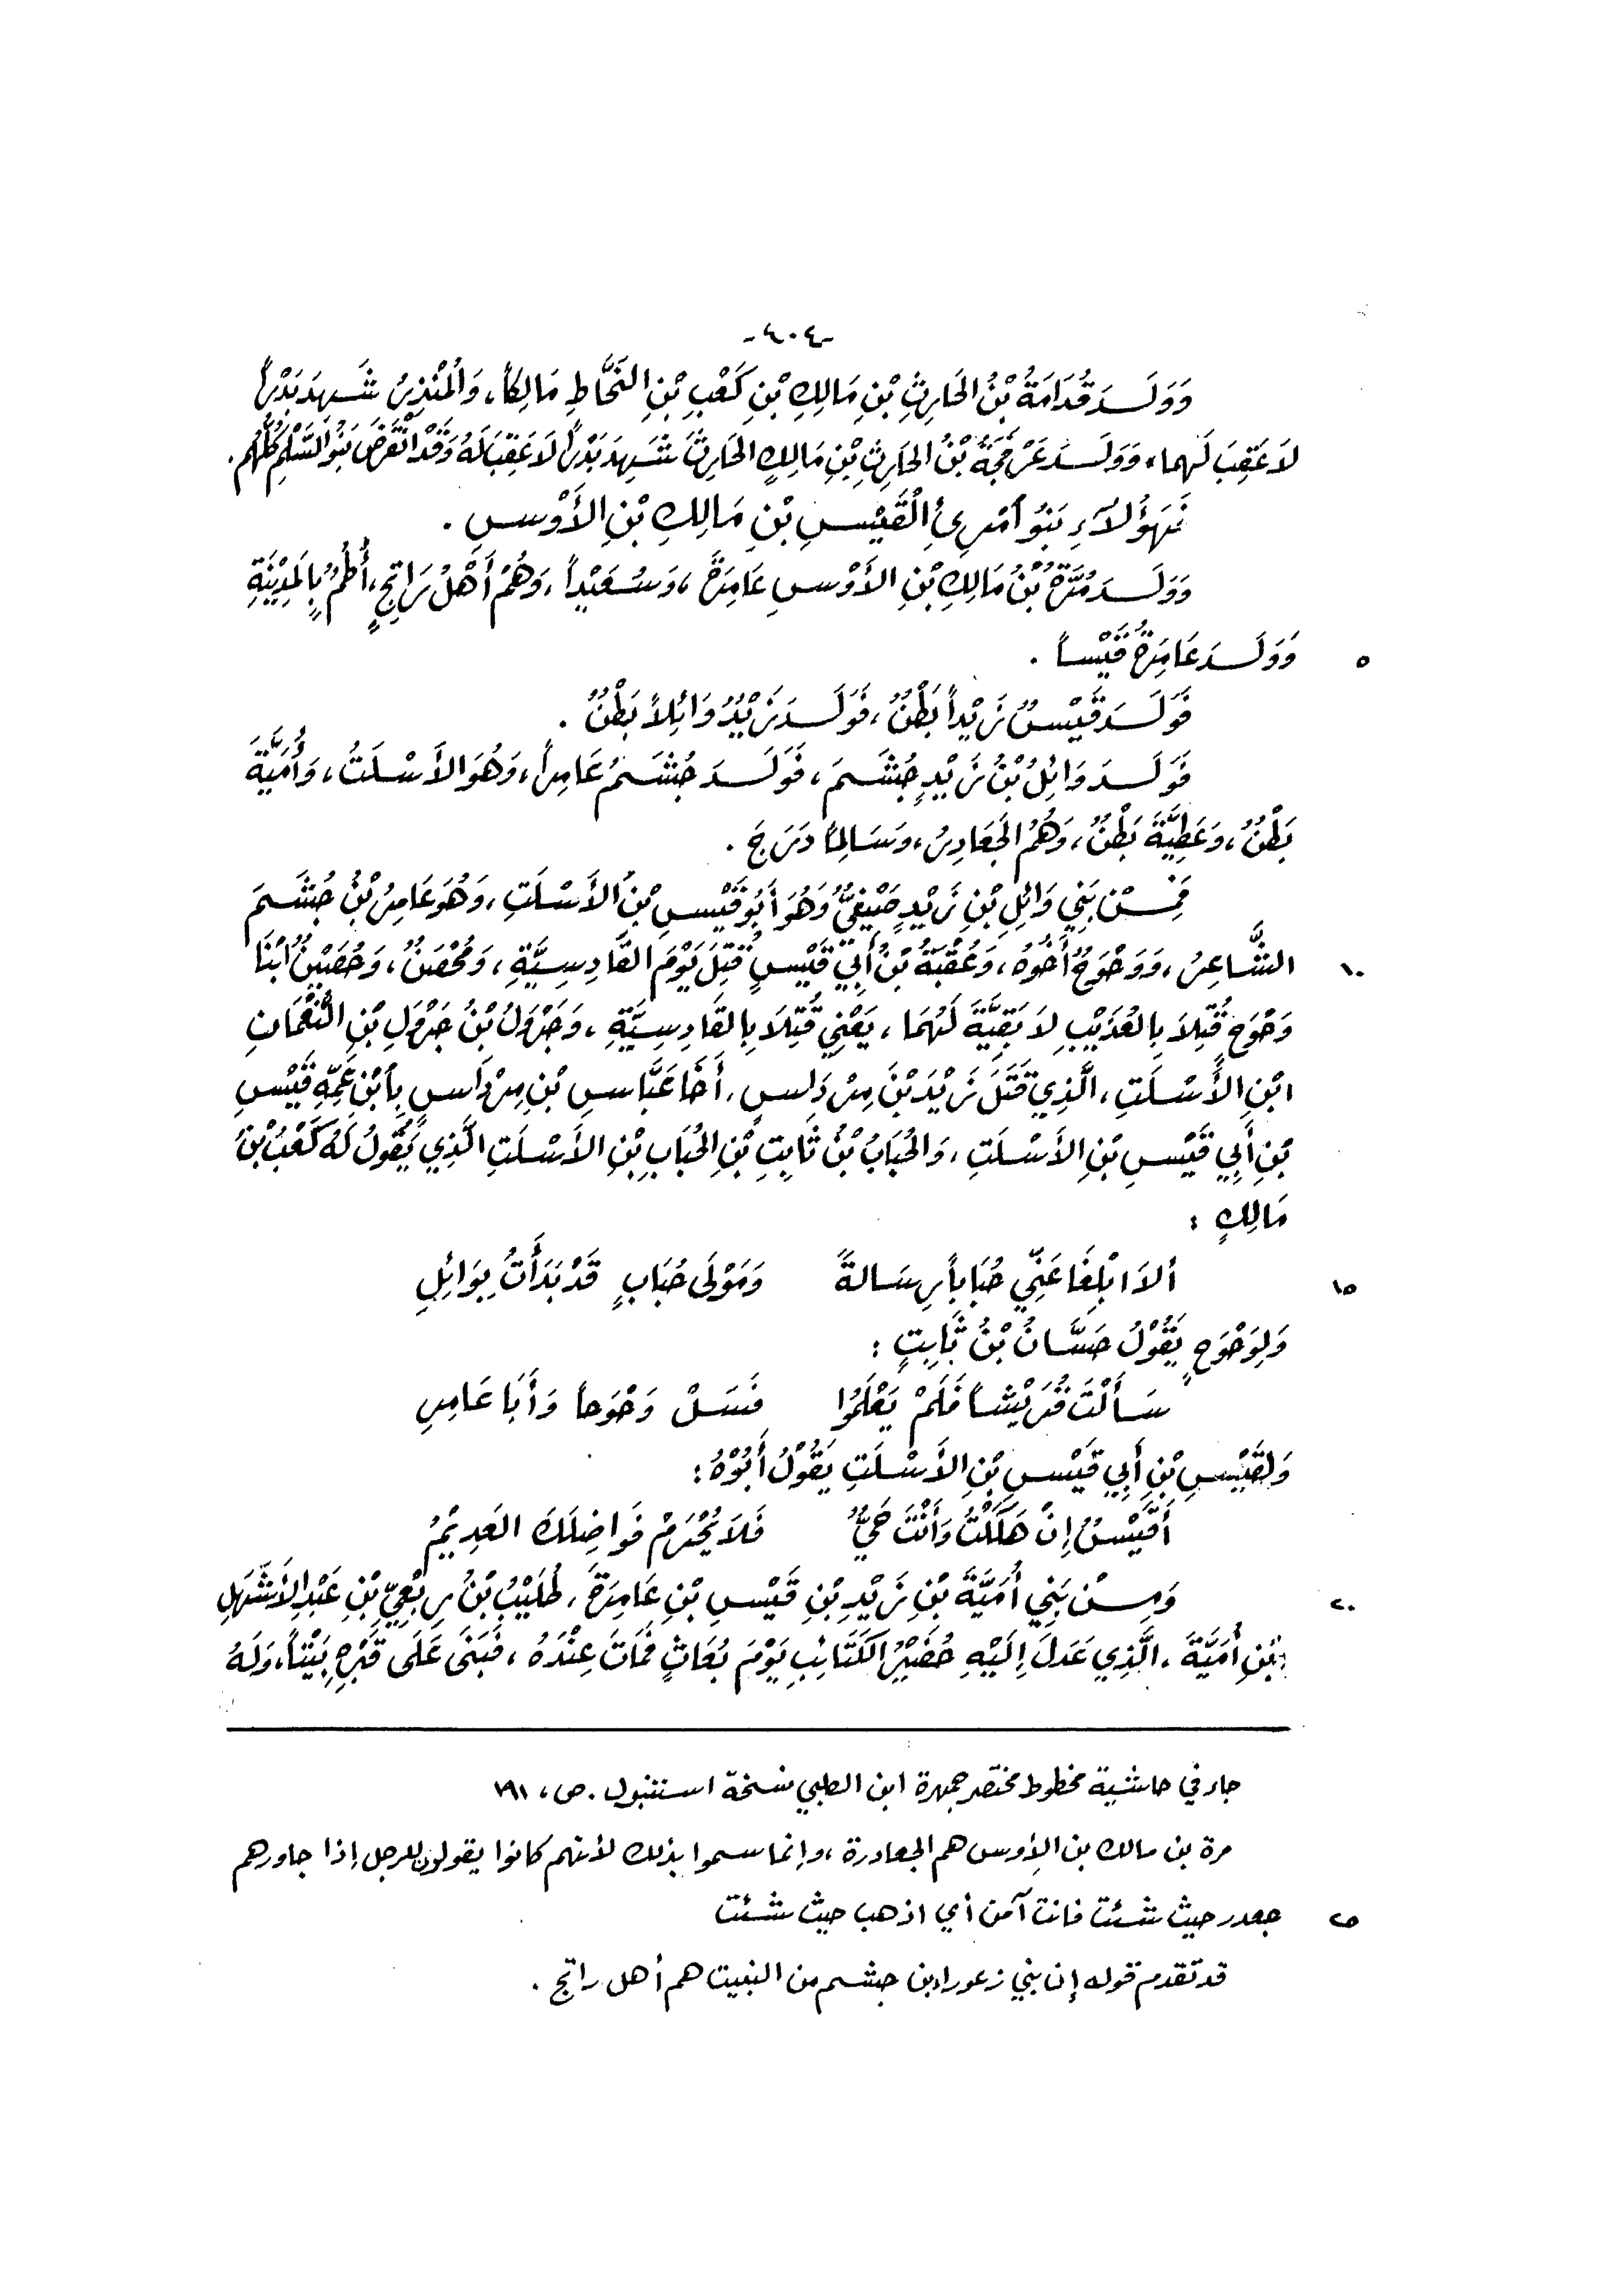 -٦٠٤-
وَوَلَدَ قُدَامَةُ بْنُ الحَارِثِ بْنِ مَالِكِ بْنِ كَعْبِ بْنِ النَّحَّاطِ مَالِكاً، وَالْمُنْذِرَ شَهِدَ بَدْراً
لاَ عَقِبَ لَهما، وَوَلَدَ عَرْفَجَةُ بْنُ الحَارِثِ بْنِ مَالِكٍ الحَارِثَ شَهِدَ بَدْراً لاَ عَقِبَ لَهُ وَقَدْ انْقَرَضَ بَنُو السَّلْمِ كُلُّهُم.
فَهَؤُلاَءِ بَنُو آمْرِئِ الْقَيْسِ بْنِ مَالِكِ بْنِ الأَوْسِ .
وَوَلَدَ مُرَّةُ بْنُ مَالِكِ بْنِ الأَوْسِ عَامِرَةَ، وَسُعَيْداً، وَهُمْ أَهْلُ رَاتِجٍ، أُطُمٌ بِالمَدِيْنَةِ
٥ وَوَلَدَ عَامِرَةُ قَيْساً .
فَوَلَدَ قَيْسٌ زَيْداً بَطْنٌ، فَوَلَدَ زَيْدٌ وَائِلاً بَطْنٌ .
فَوَلَدَ وَائِلُ بْنُ زَيْدٍ جُشَمَ، فَوَلَدَ جُشَمُ عَامِراً، وَهُوَ الأَسْلَتُ، وَأُمَيَّةَ
بَطْنٌ، وَعَطِيَّةَ بَطْنٌ، وَهُمُ الجَعَادِرُ، وَسَالِماً دَرَجَ .
فَمِنْ بَنِي وَائِلِ بْنِ زَيْدٍ صَيْفِيٌّ وَهُوَ أَبُو قَيْسِ بْنُ الأَسْلَتِ، وَهُوَ عَامِرُ بْنُ جُشَمَ
١٠ الشَّاعِرُ، وَوَحْوَحٌ أَخُوهُ، وَعُقْبَةُ بْنُ أَبِي قَيْسٍ قُتِلَ يَوْمَ القَادِسِيَّةِ، وَمُحْصَنٌ، وَحُصَيْنٌ ابْنَا
وَحْوَحٍ قُتِلاَ بِالعُذَيْبِ لاَ بَقِيَّةَ لَهُمَا، يَعْنِي قُتِلاَ بِالقَادِسِيَّةِ، وَجَرْوَلُ بْنُ جَرْوَلِ بْنِ النُّعْمَانِ
ابْنِ الأَسْلَتِ، الَّذِي قَتَلَ زَيْدَ بْنَ مِرْدَاسٍ، أَخَا عَبَّاسِ بْنِ مِرْدَاسٍ بِآبْنِ عَمِّهِ قَيْسِ
بْنِ أَبِي قَيْسِ بْنِ الأَسْلَتِ، وَالحُبَابُ بْنُ ثَابِتِ بْنِ الحُبَابِ بْنِ الأَسْلَتِ الَّذِي يَقُولُ لَهُ كَعْبُ بْنُ
مَالِكٍ :
١٥ أَلاَ ابْلِغَا عَنِّي حُبَاباً رِسَالةً وَمَوْلَى حُبَابٍ قَدْ بَدَأْتُ بِوَائِلِ
وَلِوَحْوَحٍ يَقُوْلُ حَسَّانُ بْنُ ثَابِتٍ :
سَأَلْتَ قُرَيْشاً فَلَمْ يَعْلَمُوا فَسَلْ وَحْوَحاً وَأَبَا عَامِرِ
وَلِقَيْسِ بْنِ أَبِي قَيْسِ بْنِ الأَسْلَتِ يَقُوْلُ أَبُوْهُ :
أَقَيْسُ إِنْ هَلَكْتُ وَأَنْتَ حَيٌّ فَلاَ يُحْرَمْ فَوَاضِلَكَ العَدِيْمُ
٢٠ وَمِنْ بَنِي أُمَيَّةَ بْنِ زَيْدِ بْنِ قَيْسِ بْنِ عَامِرَةَ، طُلَيْبُ بْنُ رِبْعِيِّ بْنِ عَبْدِ الأَشْهَلِ
بْنِ أُمَيَّةَ، الَّذِي عَدَلَ إِلَيْهِ حُضَيْرُ الكَتَائِبِ يَوْمَ بُعَاثٍ فَمَاتَ عِنْدَهُ، فَبَنَى عَلَى قَبْرِهِ بَيْتاً، وَلَهُ
جاء في حاشية مخطوط مختصر جمهرة ابن الكلبي نسخة استنبول . ص،
مرة بن مالك بن الأوس هم الجعادرة، وإنما سموا بذلك لأنهم كانوا يقولون للرجل إذا جاورهم
٢٥ جعدر حيث شئت فانت آمن أي اذهب حيث شئت
قد تقدم قوله إن بني زعوراء بن جشم من النبيت هم أهل راتج .